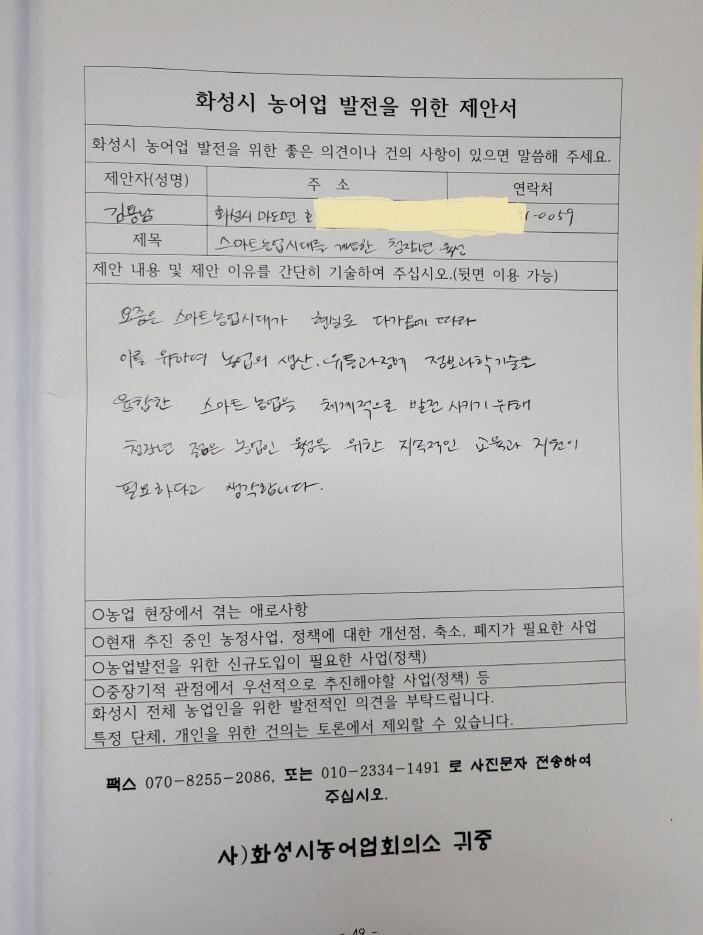 화성시 농어업 발전을 위한 제안서
화성시 농어업 발전을 위한 좋은 의견이나 건의 사항이 있으면 말씀해 주세요.
제안자(성명) 주 소 연락처
김용남 화성시 마도면 -0059
제목 스마트농업시대를 개방한 청장년 육성
제안 내용 및 제안 이유를 간단히 기술하여 주십시오.(뒷면 이용 가능)
요즘은 스마트농업시대가 현실로 다가옴에 따라
이를 위하여 농업의 생산.유통과정에 정보과학기술을
융합한 스마트농업을 체계적으로 발전 시키기 위해
청장년 젊은 농업인 육성을 위한 지속적인 교육과 지원이
필요하다고 생각합니다.
○농업 현장에서 겪는 애로사항
○현재 추진 중인 농정사업, 정책에 대한 개선점, 축소, 폐지가 필요한 사업
○농업발전을 위한 신규도입이 필요한 사업(정책)
○중장기적 관점에서 우선적으로 추진해야할 사업(정책) 등
화성시 전체 농업인을 위한 발전적인 의견을 부탁드립니다.
특정 단체, 개인을 위한 건의는 토론에서 제외할 수 있습니다.
팩스 070-8255-2086, 또는 010-2334-1491 로 사진문자 전송하여
주십시오.
사)화성시농어업회의소 귀중
- 49 -